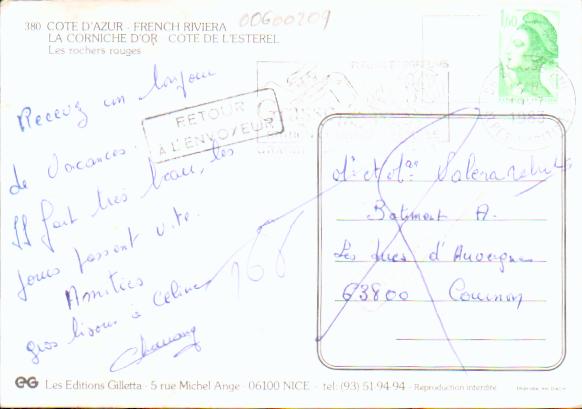 00600209
380 COTE D'AZUR - FRENCH RIVIERA
LA CORNICHE D'OR COTE DE L'ESTEREL
Les rochers rouges
1,60
RETOUR
A L'ENVOYEUR
Recevez un bonjour
de Vacances.
Il fait très beau, les
jours passent vite.
Amitiés
gros bisous à Céline
168
Mr et Mme
Batiment A.
Les rives d'Auvergne
63800 Cournon
EG Les Editions Gilletta - 5 rue Michel Ange - 06100 NICE - tel: (93) 51 94 94 - Reproduction interdite